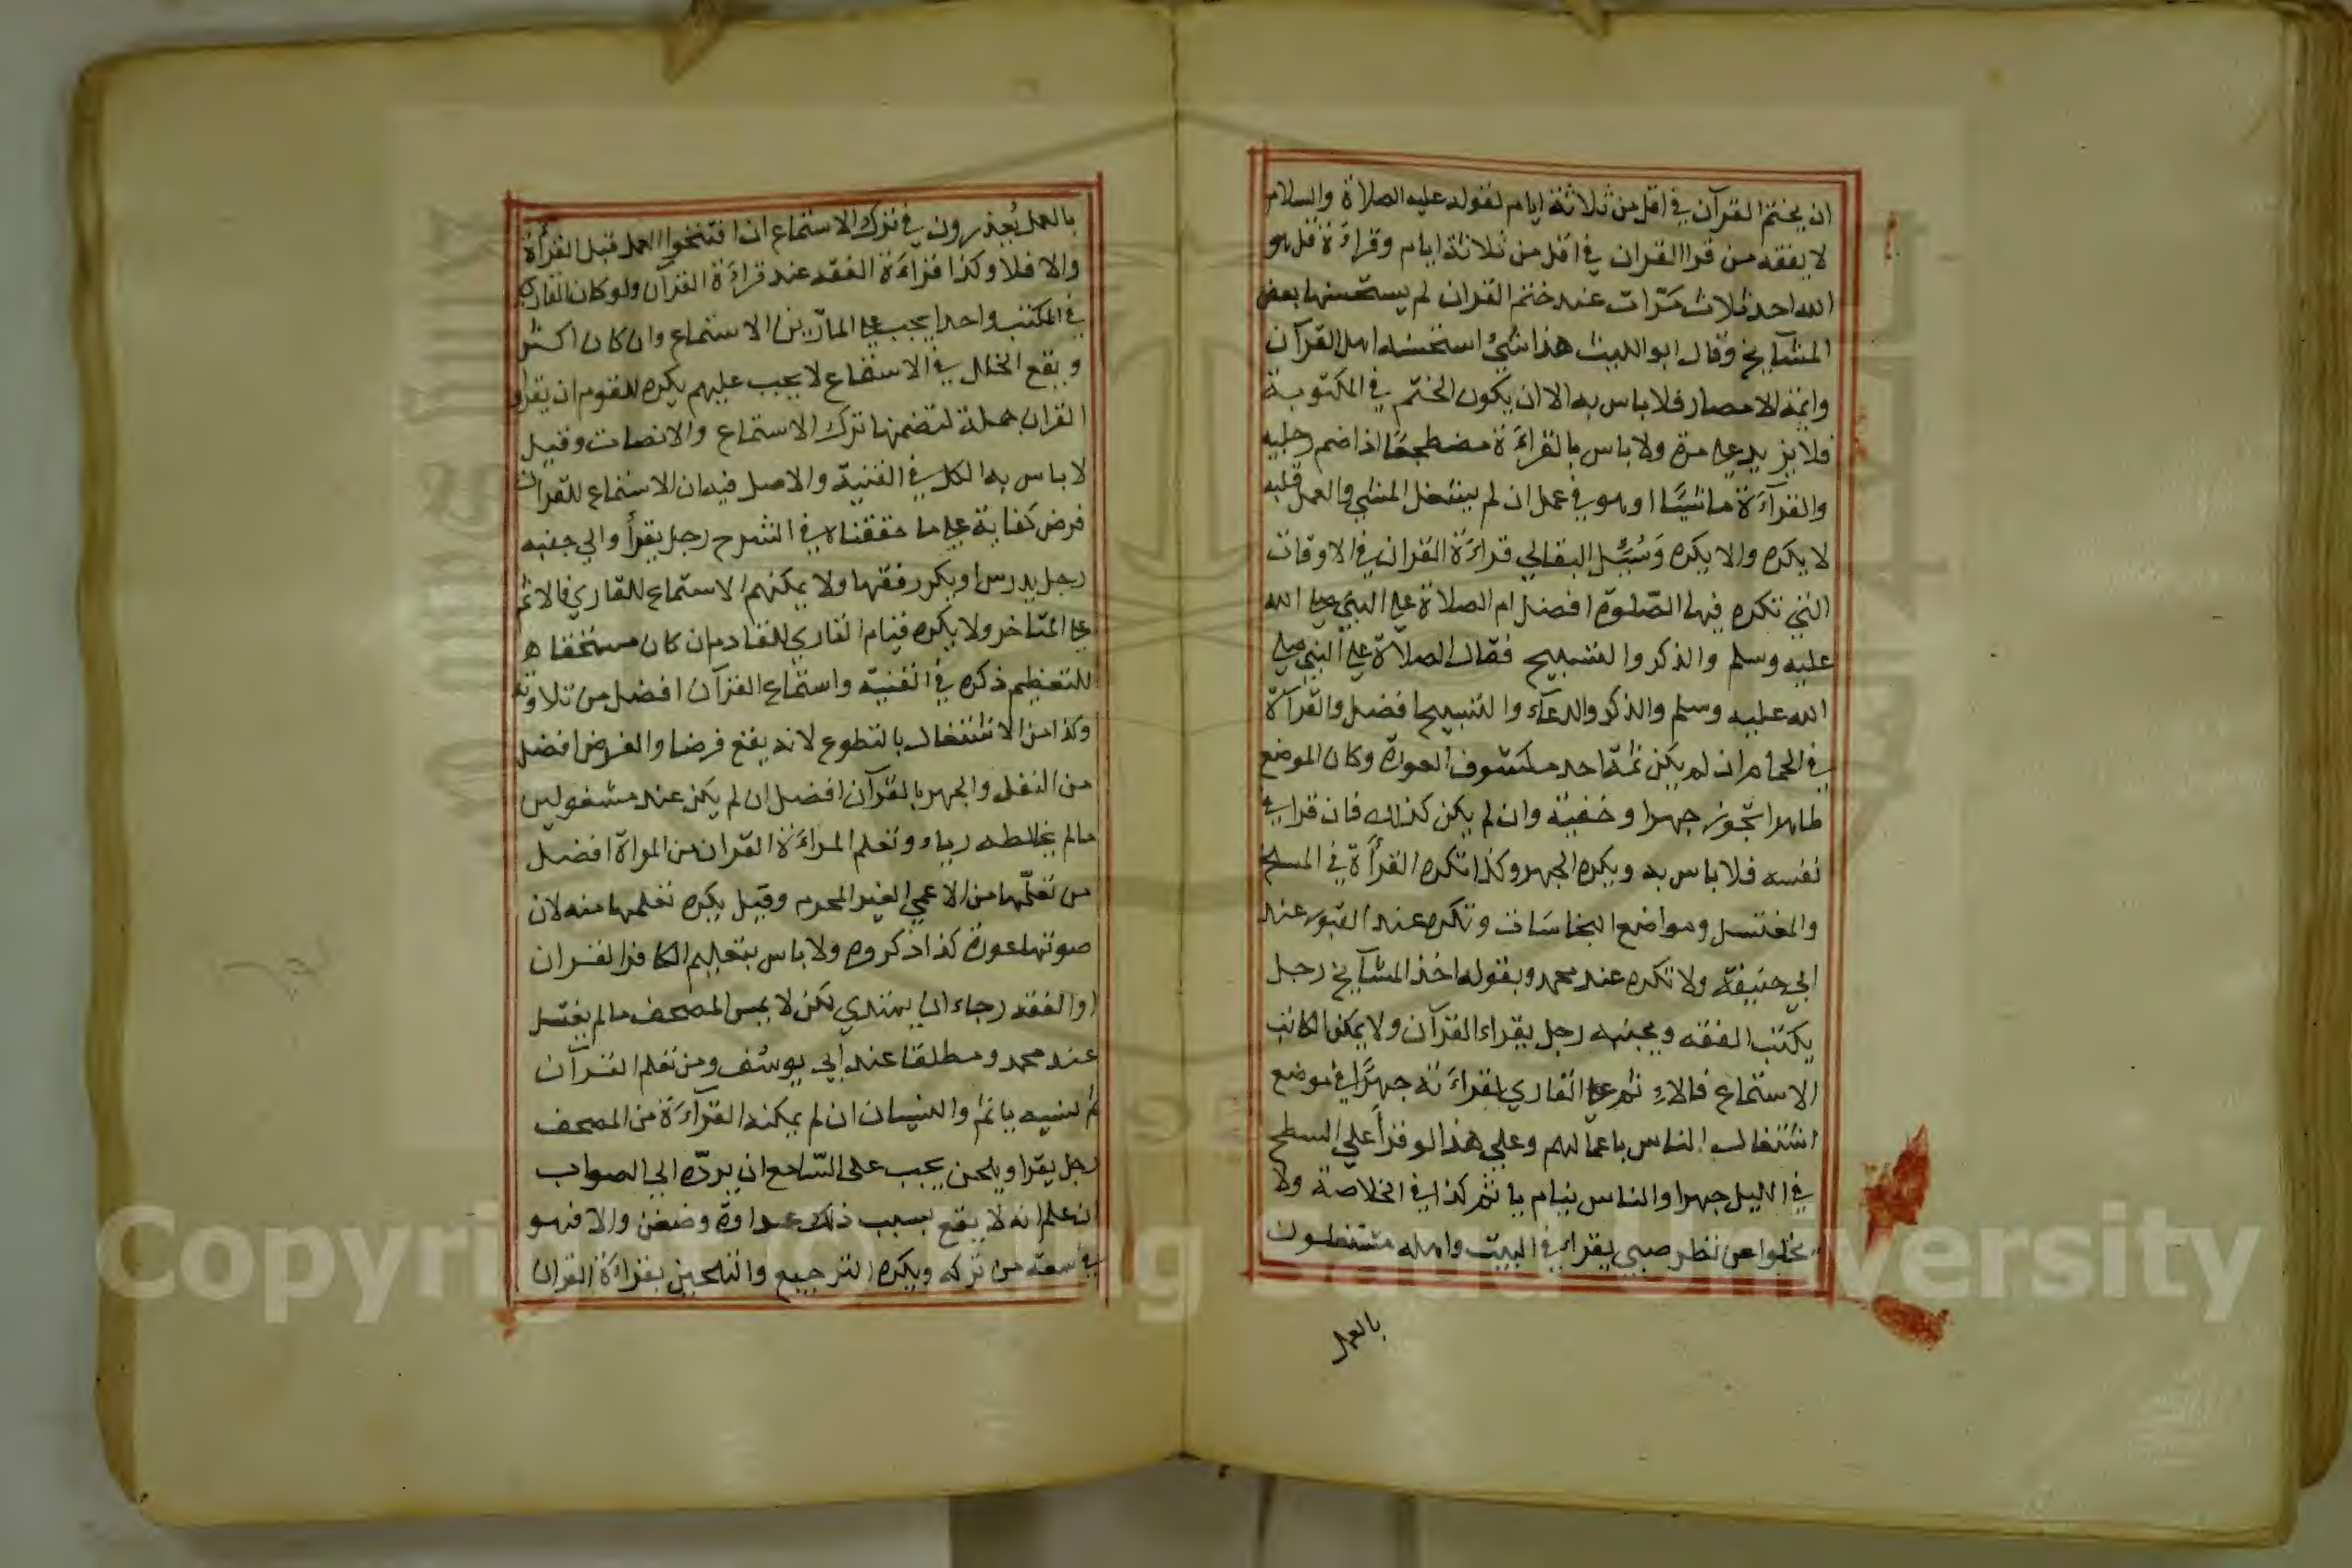 ان يختم القرآن في اقل من ثلاثة ايام لقوله عليه الصلاة والسلام
لا يفقه من قرا القران في اقل من ثلاثة ايام وقراءة قل هو
الله احد ثلاث مرّات عند ختم القران لم يستحسنها بعض
المشآيخ وقال ابو الليث هذا شيء استحسنه اهل القرآن
وائمة الامصار فلا باس به الا ان يكون الختم في المكتوبة
فلا يزيد على مرة ولا باس بالقراءة مضطجعًا اذا ضم رجليه
والقرآءة ماشيًا او هو في عمل ان لم يشغل المشي والعمل قلبه
لا يكره والا يكره وسُئل البقالي قراءة القران في الاوقات
التي تكره فيها الصّلوة افضل ام الصلاة على النبي صلى الله
عليه وسلم والذكر والتسبيح فقال الصلاة على النبي صلى
الله عليه وسلم والذكر والدعآء والتسبيح افضل والقرآة
في الحمام ان لم يكن ثمة احد مكشوف العورة وكان الموضع
طاهرا تجوز جهرا وخفية وان لم يكن كذلك فان قرا في
نفسه فلا باس به ويكره الجهر وكذا تكره القرأة في المسلخ
والمغتسل ومواضع النجاسات وتكره عند القبور عند
ابي حنيفة ولا تكره عند محمد وبقوله اخذ المشآيخ رجل
يكتب الفقه وبجنبه رجل يقراء القرآن ولا يمكن الكاتب
الاستماع فالاثم على القاري لقراءته جهرًا في موضع
اشتغال الناس باعمالهم وعلى هذا لو قرأ على السطح
في الليل جهرا والناس نيام ياثم كذا في الخلاصة ولا
يخلوا عن نظر صبي يقراء في البيت واهله مشتغلون
بالعمل
بالعمل يُعذرون في ترك الاستماع ان افتتحوا العمل قبل القرأة
والا فلا وكذا قراءة الفقه عند قراءة القرآن ولو كان القاري
في المكتب واحدا يجب على المارّين الاستماع وان كان اكثر
ويقع الخلل في الاستماع لا يجب عليهم يكره للقوم ان يقراو
القران جملة لتضمنها ترك الاستماع والانصات وقيل
لا باس به الكل في القنية والاصل فيه ان الاستماع للقران
فرض كفاية على ما حققناه في الشرح رجل يقرأ والى جنبه
رجل يدرس او يكرر فقها ولا يمكنهم الاستماع للقاري فالاثم
على المتاخر ولا يكره قيام القاري للقادم ان كان مستحقا ه
للتعظيم ذكره في القنية واستماع القرآن افضل من تلاوته
وكذا من الاشتغال بالتطوع لانه يقع فرضا والفرض افضل
من النفل والجهر بالقرآن افضل ان لم يكن عند مشغولين
مالم يخالطه رياء وتعلم المراءة القران من المراة افضل
من تعلّمها من الاعمى الغير المحرم وقيل يكره تعلمها منه لان
صوتها عورة كذا ذكروه ولا باس بتعليم الكافر القران
او الفقه رجاء ان يهتدي لكن لا يمس المصحف مالم يغتسل
عند محمد ومطلقا عند ابي يوسف ومن تعلم القرآن
ثم نسيه ياثم والنسيان ان لم يمكنه القرآءة من المصحف
رجل يقرا ويلحن يجب على السّامع ان يردّه الى الصواب
ان علم انه لا يقع بسبب ذلك عداوة وضغن والا فهو
في سعة من تركه ويكره الترجيع والتلحين بقراءة القران
Copyright © King Saud University